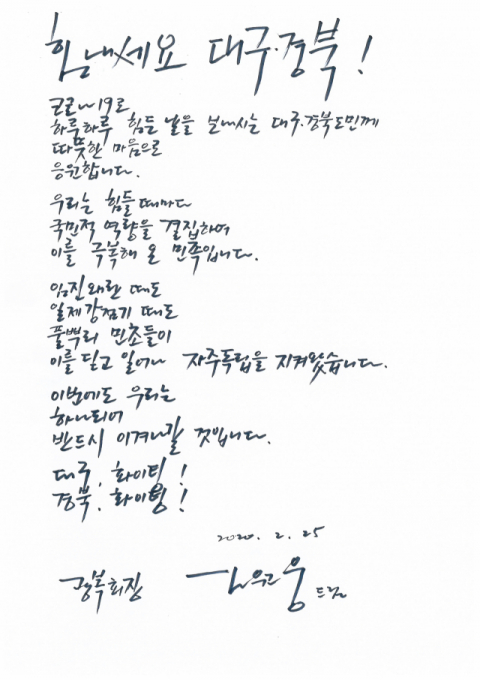 힘내세요 대구·경북!
코로나19로
하루하루 힘든 날을 보내시는 대구·경북도민께
따뜻한 마음으로
응원합니다.
우리는 힘들 때마다
국민적 역량을 결집하여
이를 극복해 온 민족입니다.
임진왜란 때도
일제강점기 때도
풀뿌리 민초들이
이를 딛고 일어나 자주독립을 지켜왔습니다.
이번에도 우리는
하나되어
반드시 이겨나갈 것입니다.
대구, 화이팅!
경북, 화이팅!
2020. 2. 25
광복회장 김원웅 드림